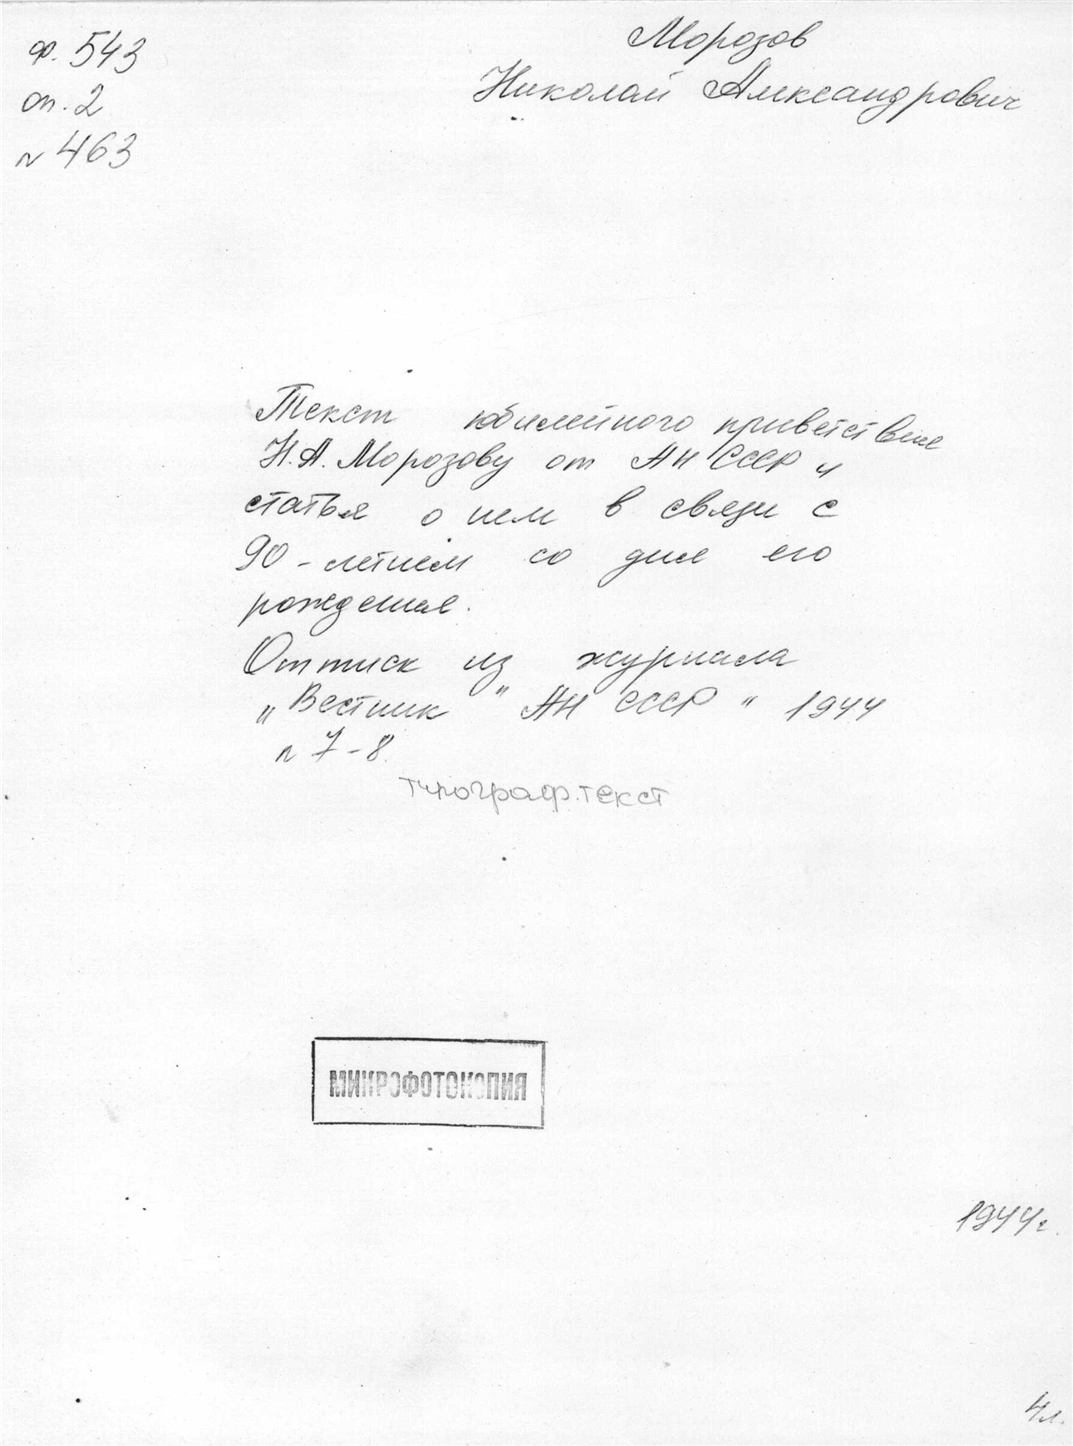 ф. 543
оп. 2
N 463
Морозов
Николай Александрович
Текст юбилейного приветствия
Н.А. Морозову от АН СССР и
статья о нем в связи с
90-летием со дня его
рождения.
Оттиск из журнала
„Вестник" АН СССР" 1944
N 7-8.
типограф. текст
МИКРОФОТОКОПИЯ
1944 г.
4 л.